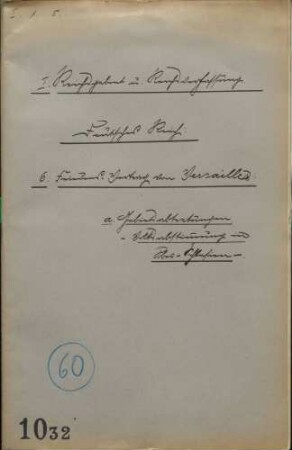 I 1 6
I. Reichsgebiet u. Reichsverfassung
Deutsches Reich:
6. Friedens-Vertrag von Versailles:
a. Gebietsabtretungen
- Volksabstimmung in
Schlesien -
60
1032